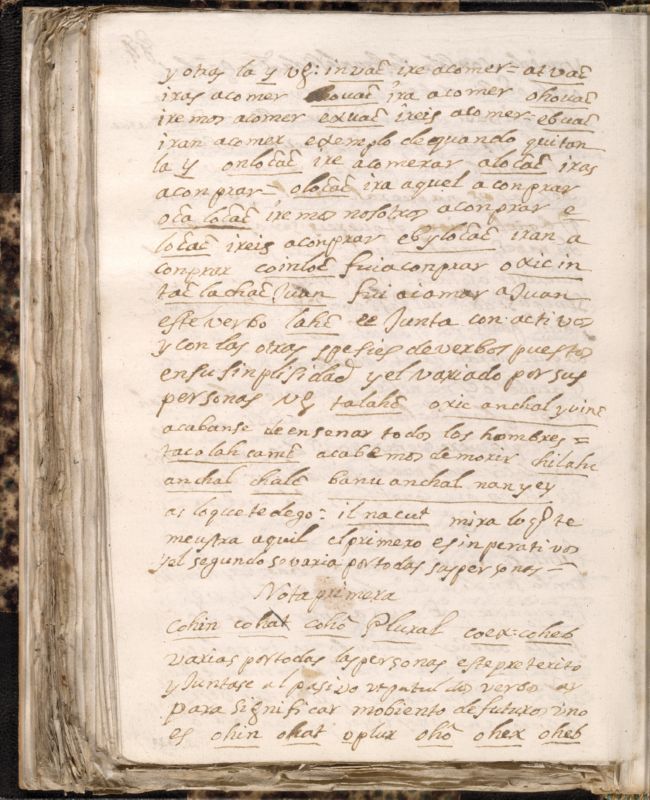 y otras la y vg: in vac̃ ire acomer = at vac̃
iras acomer ohovac̃ ira acomer ohovac̃
iremos acomer exvac̃ ireis acomer ebvac̃
iran acomer exemplo de quando quitan
la y onlocac̃ ire acomprar alocac̃ iras
aconprar = olocac̃ ira aquel aconprar
locac̃ iremos nosotros aconprar e
locac̃ ireis aconprar ebylocac̃ iran a
conprar coinloc̃ fui aconprar oxic in
tac̃ lachac̃ Juan fui a Juan
este verbo lahc̃ se Junta con activos
y con las otras spesies de verbos puestos
en su sinplisidad y el variado por sus
personas vg talahc̃ oxic anchal yvinc
acabanse de ensenar todos los hombres =
tacolah camc̃ acabemos de morir hilahc
anchal chalc̃ banv anchal nan yey
as lo que te dego: il nacut mira lo q̃ te
meustra aquil el primero es inperativo
y el segundo se varia por todas sus personas =
Nota primera
cohin cohat cohõ Plural coex = coheb
varias por todas las personas este preterito
y Juntase al pasivo los verbos
para significar mobiento de futuro uno
es ohin ohat plur ohõ ohex oheb